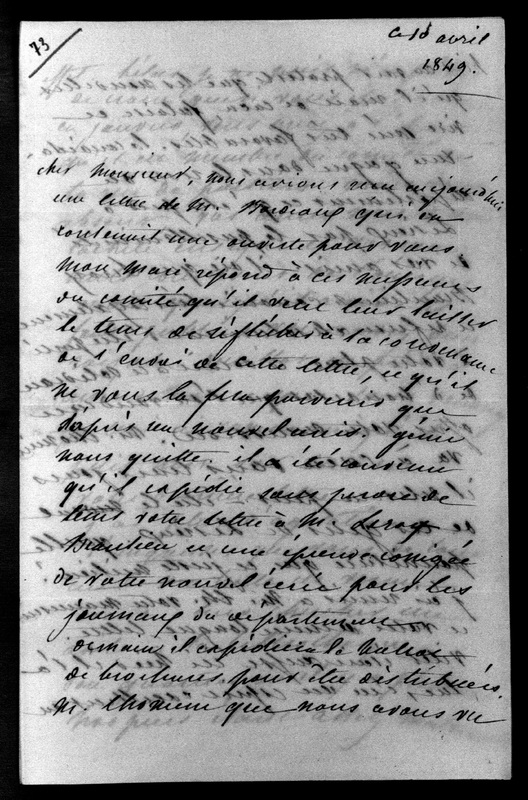 73
ce 18 avril
1849.
cher monsieur, nous avions reçu aujourd'hui
une lettre de M. Bordeaux qui en
contenait une ouverte pour vous
mon mari répond à ces messieurs
du comité qu'il veut leur laisser
le tems de réfléchir à la
de l'envoi de cette lettre, et qu'il
ne vous la fera parvenir que
d'après un nouvel avis.
nous quitte il a été convenu
qu'il expédie sans perdre de
tems votre lettre à M. Leroy
Beaulieu et une épreuve corrigée
de votre nouvel écrit pour les
journaux du département
demain il expédiera le
de brochures pour être distribuées.
M. que nous avons vu